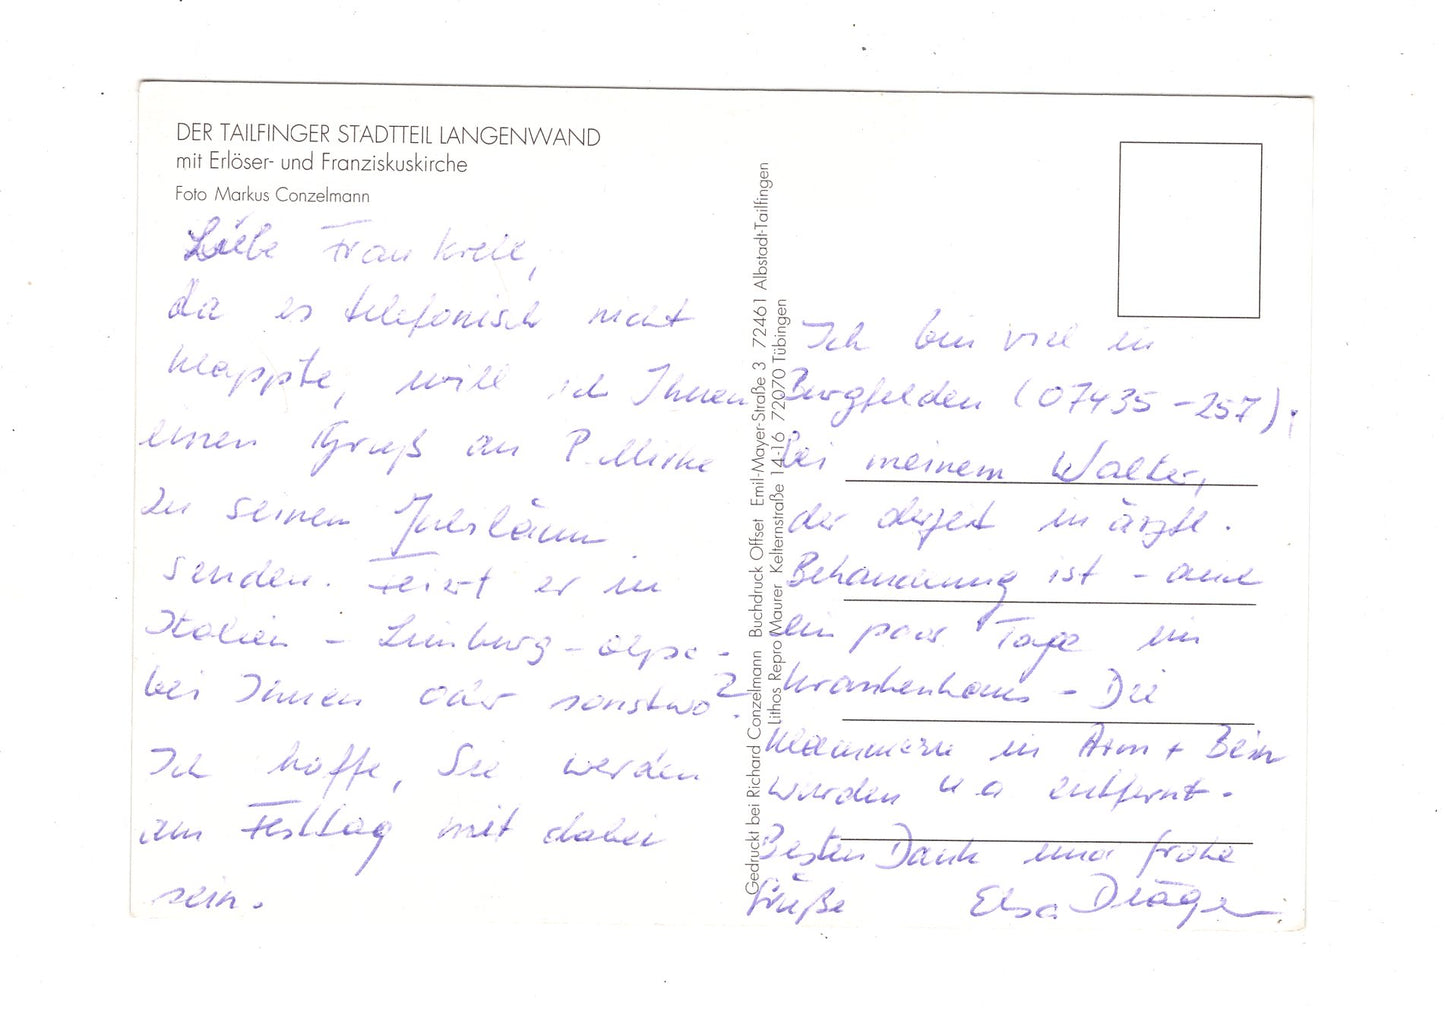 DER TAILFINGER STADTTEIL LANGENWAND
mit Erlöser- und Franziskuskirche
Foto Markus Conzelmann
Liebe Frau Krell,
da es telefonisch nicht
klappte, will ich Ihnen
einen Gruß an P.
zu seinem Jubiläum
senden. Feiert er in
Italien - Limburg -
bei Ihnen oder sonstwo?
Ich hoffe, Sie werden
am Festtag mit dabei
sein.
Gedruckt bei Richard Conzelmann Buchdruck Offset Emil-Mayer-Straße 3 72461 Albstadt-Tailfingen
Lithos Repro Maurer Kelternstraße 14-16 72070 Tübingen
Ich bin viel in
Burgfelden (07435-257).
bei meinem Walter,
der derzeit in ärztl.
Behandlung ist - auch
ein paar Tage im
Krankenhaus - Die
Klammern in Arm + Bein
wurden u a entfernt.
Besten Dank und frohe
Grüße Elsa Dräger